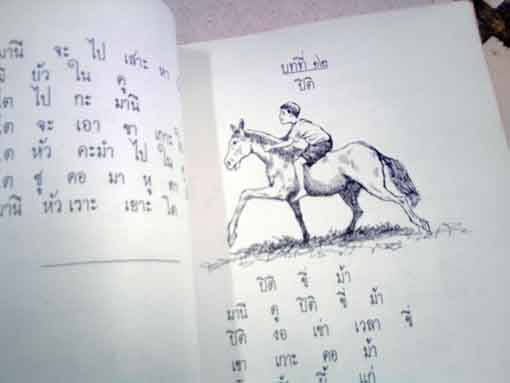 มานี จะ ไป เสาะ หา
ใน
โต ไป กะ มานี
โต จะ เอา ขา เกาะ
โต หัว คะมำ ไป ใน
โต ชู คอ มา หู
มานี หัวเราะ เยาะ โต
บทที่ ๑๒
ปิติ
ปิติ ขี่ ม้า
มานี ดู ปิติ ขี่ ม้า
ปิติ งอ เข่า เวลา ขี่
เขา เกาะ คอ ม้า
แก่